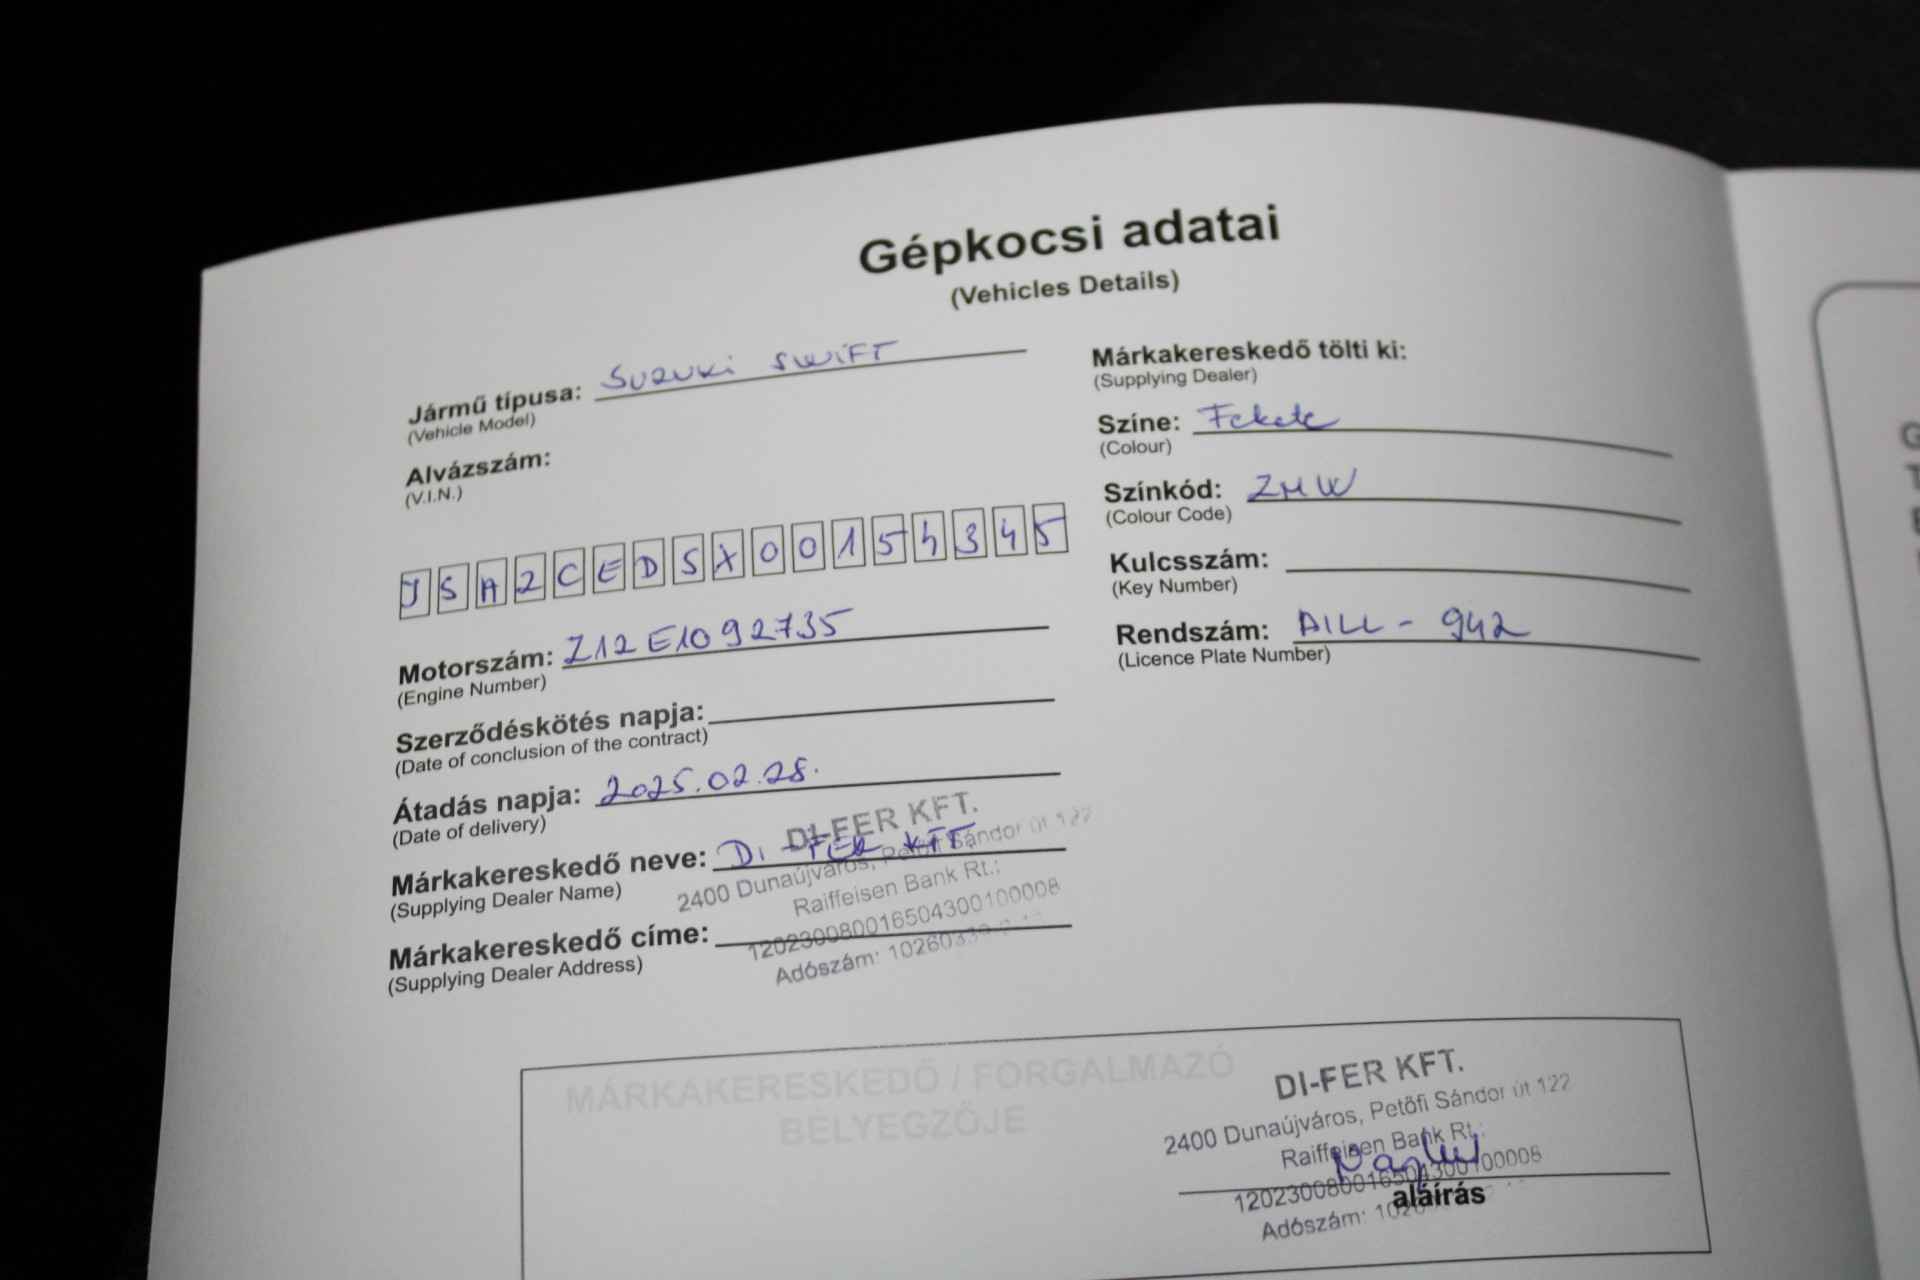 Gépkocsi adatai
(Vehicles Details)
Jármű típusa: SUZUKI SWIFT
(Vehicle Model)
Alvázszám:
(V.I.N.)
JSA2CEDSX00154345
Motorszám: Z12E1092735
(Engine Number)
Szerződéskötés napja:
(Date of conclusion of the contract)
Átadás napja: 2025.02.28.
(Date of delivery)
Márkakereskedő neve: DI-FER KFT
(Supplying Dealer Name)
Márkakereskedő címe:
(Supplying Dealer Address)
DI-FER KFT.
2400 Dunaújváros, Petőfi Sándor út 122
Raiffeisen Bank Rt.:
120230080016504300100008
Adószám: 10260339
Márkakereskedő tölti ki:
(Supplying Dealer)
Színe: Fekete
(Colour)
Színkód: ZMW
(Colour Code)
Kulcsszám:
(Key Number)
Rendszám: AILL-942
(Licence Plate Number)
MÁRKAKERESKEDŐ / FORGALMAZÓ
BELYEGZŐJE
DI-FER KFT.
2400 Dunaújváros, Petőfi Sándor út 122
Raiffeisen Bank Rt.:
120230080016504300100008
aláírás
Adószám: